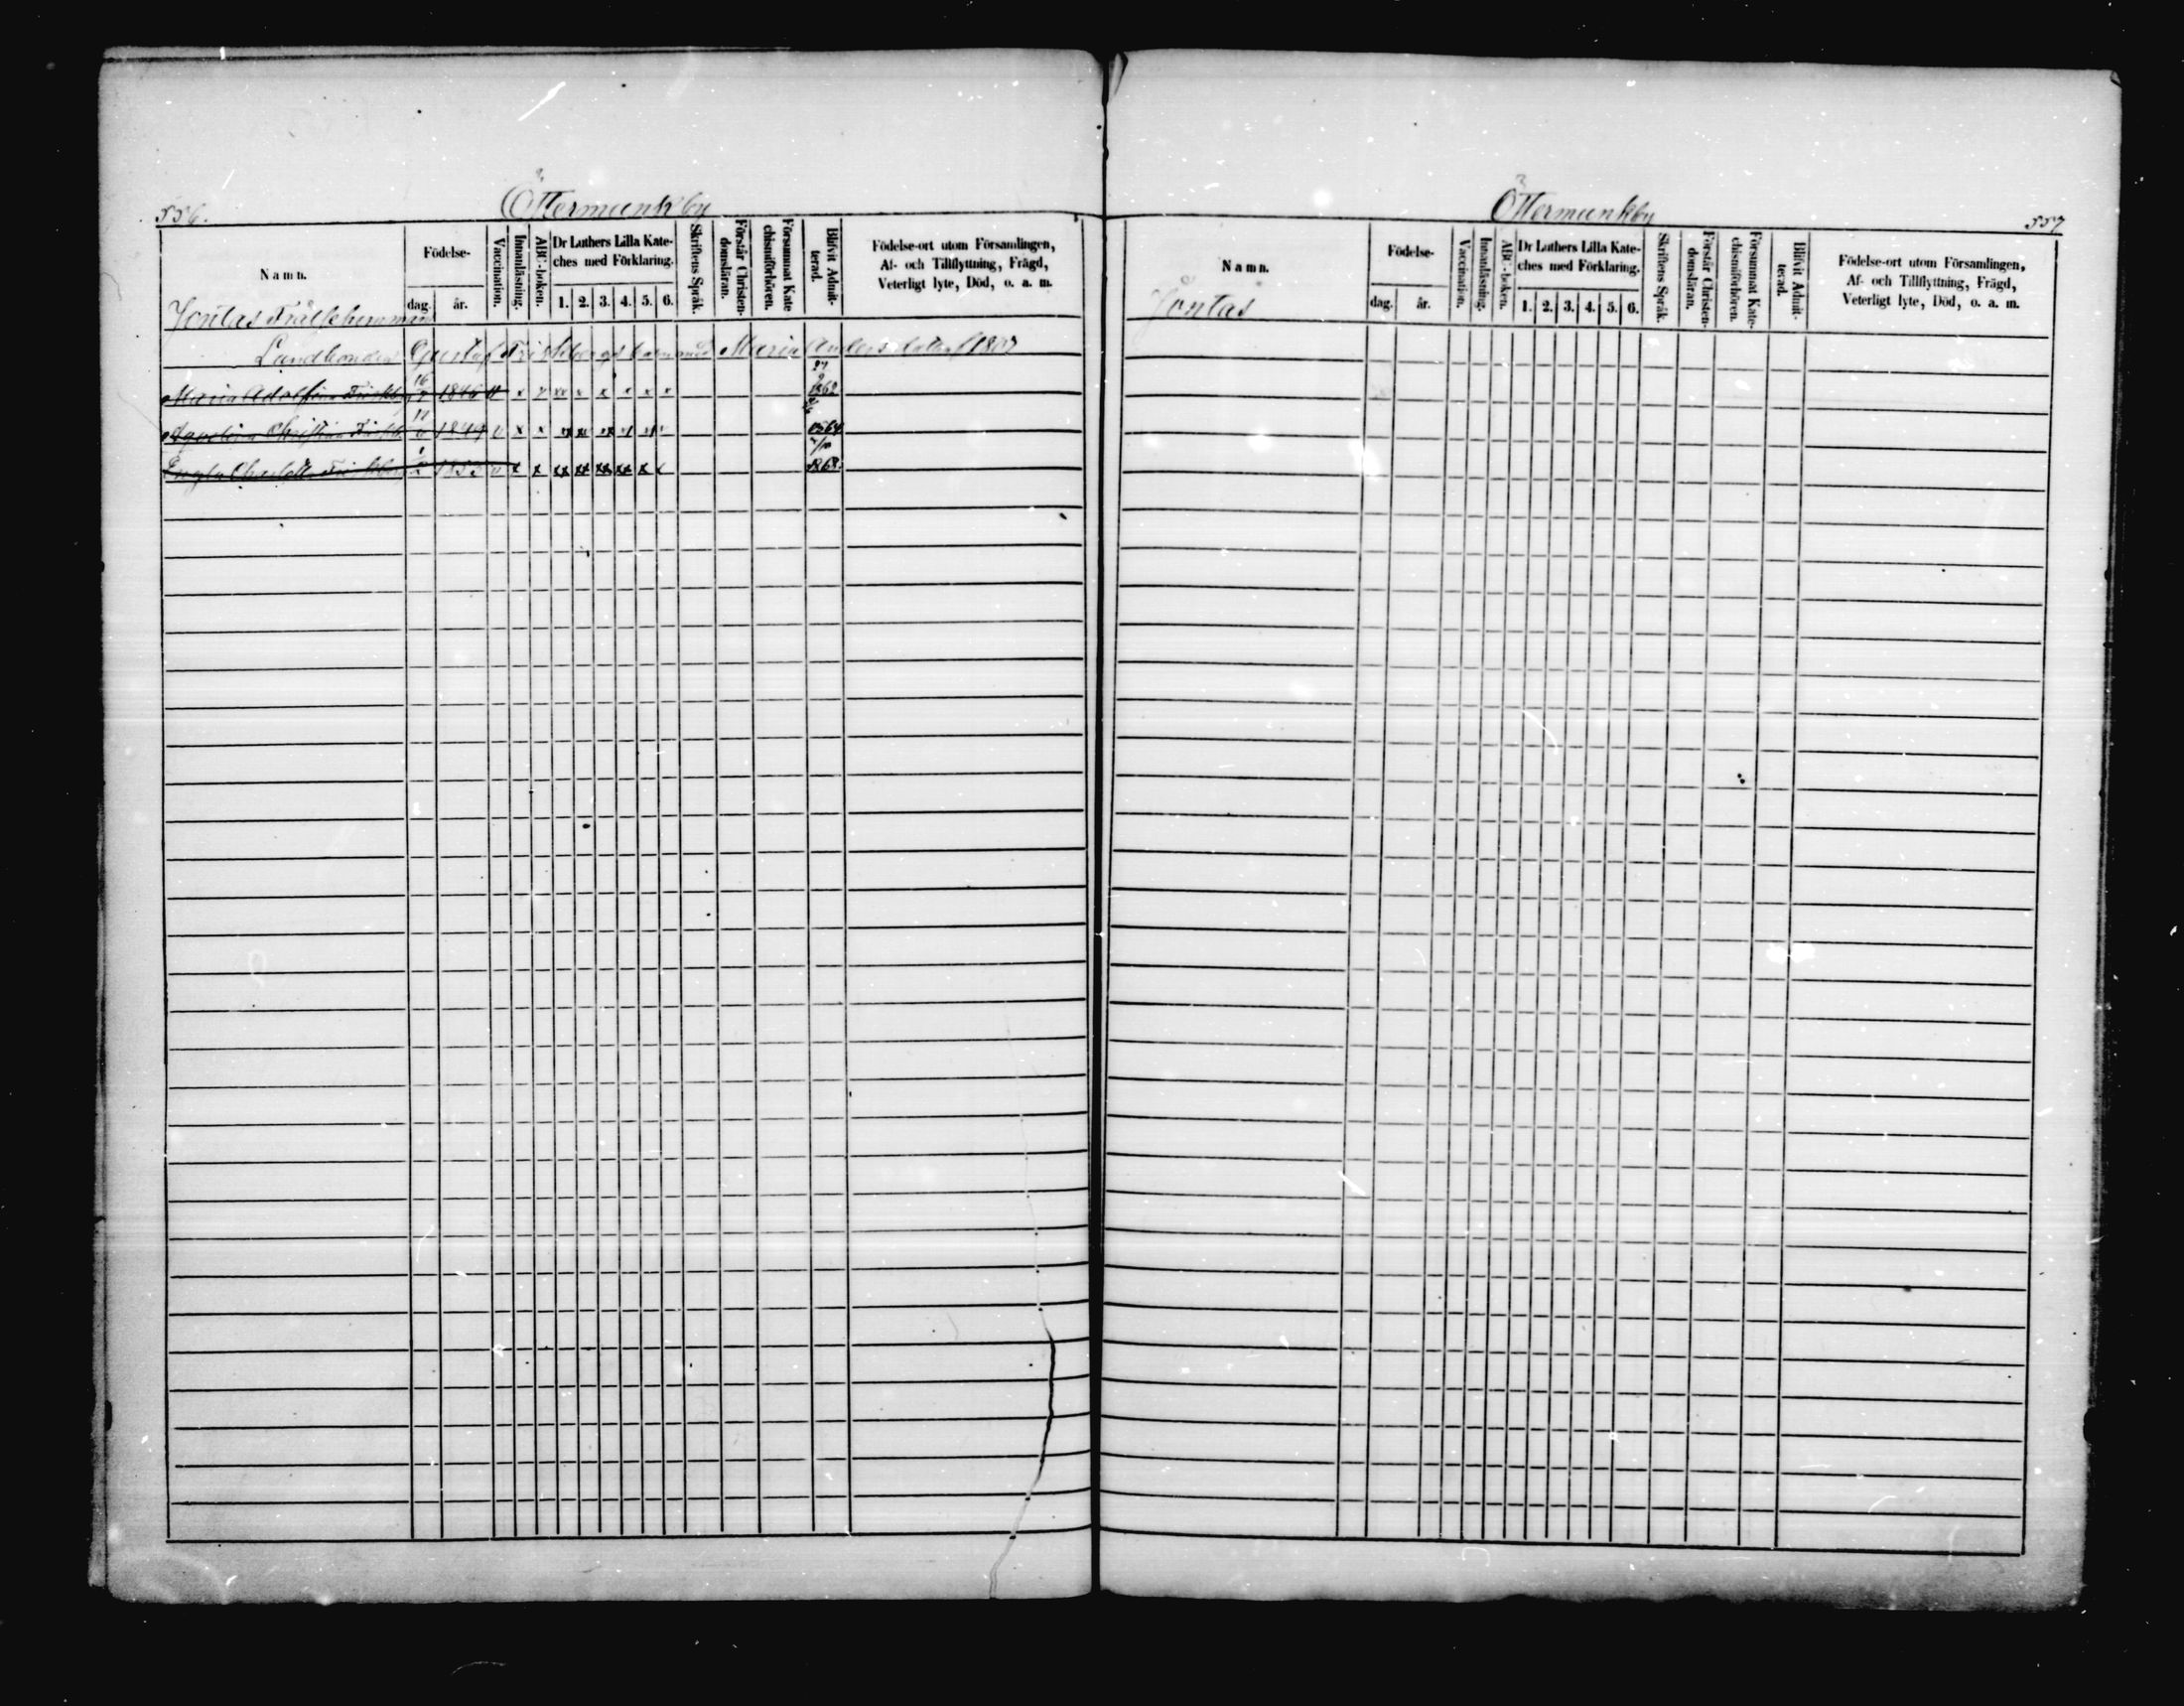 556.
Östermunkby
Namn.
Födelse-
dag. år.
Vaccination.
Innanläsning.
ABC-boken.
Dr Luthers Lilla Kate-
ches med Förklaring.
1. 2. 3. 4. 5. 6.
Skriftens Språk.
Förstår Christen-
domsläran.
Försummat Kate
chismiförhören.
Blifvit Admit-
terad.
Födelse-ort utom Församlingen,
Af- och Tillflyttning, Frägd,
Veterligt lyte, Död, o. a. m.
Jontas Frälsehemman
Landbonden Gustaf Friskbergs barn med Maria Andersdotter f 1807
Maria Adolfina 1846 v x x xx x x x x x 1862
Christina 1849 v x x 1864
Charlotta v x x xx xx xx xx x x 1868.
Östermunkby
557
Namn.
Födelse-
dag. år.
Vaccination.
Innanläsning.
ABC-boken.
Dr Luthers Lilla Kate-
ches med Förklaring.
1. 2. 3. 4. 5. 6.
Skriftens Språk.
Förstår Christen-
domsläran.
Försummat Kate-
chismiförhören.
Blifvit Admit-
terad.
Födelse-ort utom Församlingen,
Af- och Tillflyttning, Frägd,
Veterligt lyte, Död, o. a. m.
Jontas